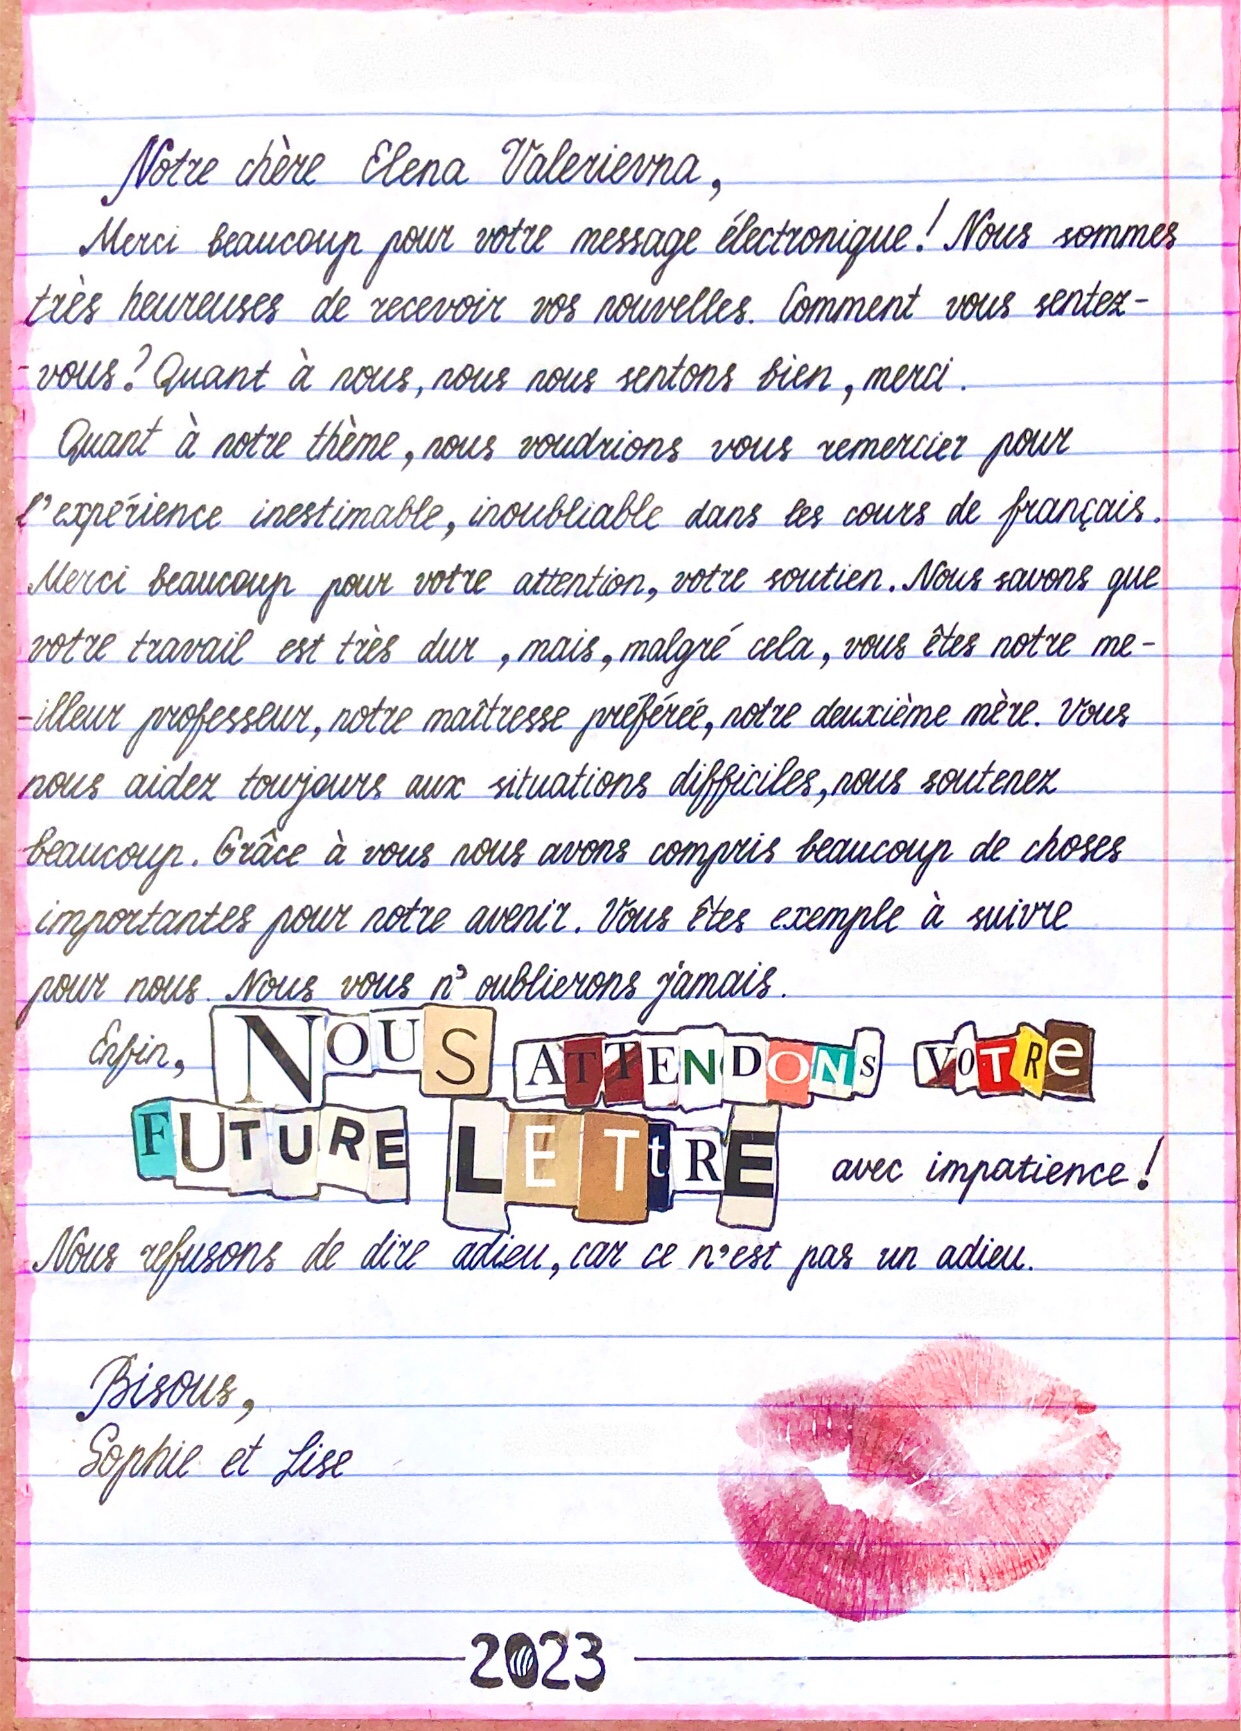 Notre chère Elena Valerievna,
Merci beaucoup pour votre message électronique! Nous sommes
très heureuses de recevoir vos nouvelles. Comment vous sentez-
-vous? Quant à nous, nous nous sentons bien, merci.
Quant à notre thème, nous voudrions vous remercier pour
l'expérience inestimable, inoubliable dans les cours de français.
Merci beaucoup pour votre attention, votre soutien. Nous savons que
votre travail est très dur, mais, malgré cela, vous êtes notre me-
-illeur professeur, notre maîtresse préférée, notre deuxième mère. Vous
nous aidez toujours aux situations difficiles, nous soutenez
beaucoup. Grâce à vous nous avons compris beaucoup de choses
importantes pour notre avenir. Vous êtes exemple à suivre
pour nous. Nous vous n'oublierons jamais.
Enfin, NOUS ATTENDONS VOTRe
FUTURE LETtRE avec impatience!
Nous refusons de dire adieu, car ce n'est pas un adieu.
Bisous,
Sophie et Lise
2023